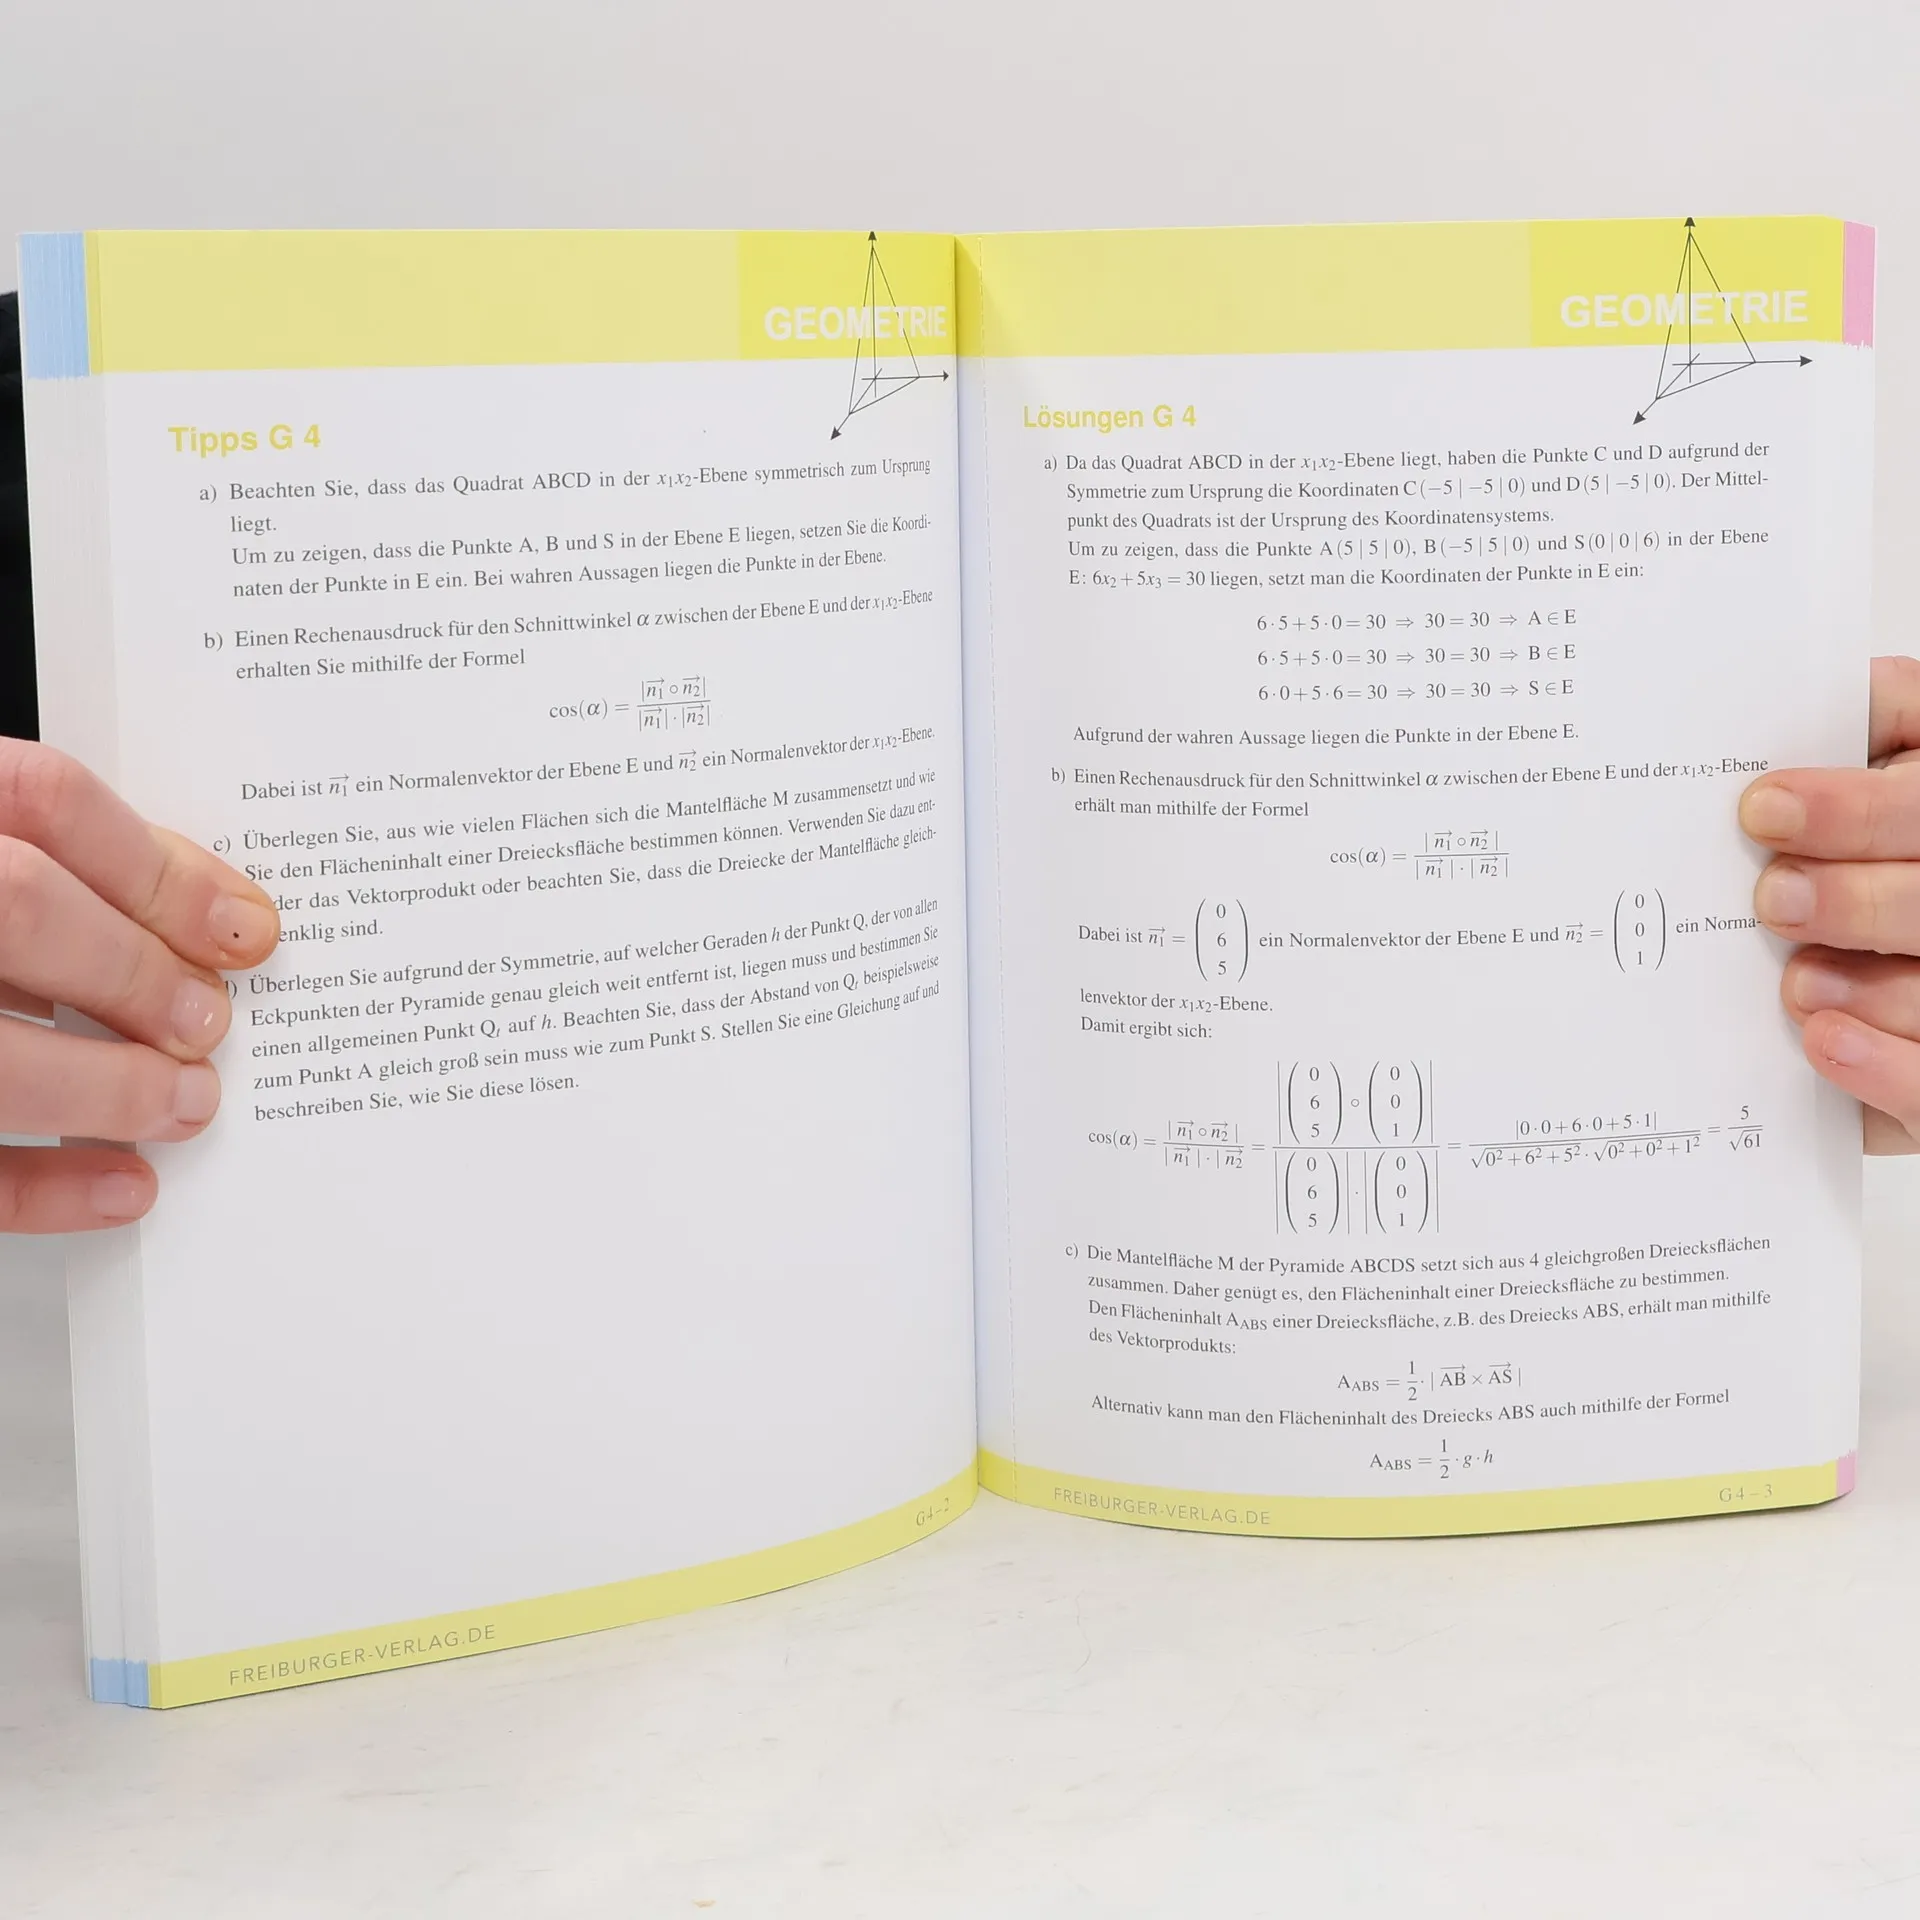 GEOMETRIE
Tipps G 4
a) Beachten Sie, dass das Quadrat ABCD in der x₁x₂-Ebene symmetrisch zum Ursprung
liegt.
Um zu zeigen, dass die Punkte A, B und S in der Ebene E liegen, setzen Sie die Koordi-
naten der Punkte in E ein. Bei wahren Aussagen liegen die Punkte in der Ebene.
b) Einen Rechenausdruck für den Schnittwinkel α zwischen der Ebene E und der x₁x₂-Ebene
erhalten Sie mithilfe der Formel
cos(α) = |n₁⃗ ∘ n₂⃗| / |n₁⃗| · |n₂⃗|
Dabei ist n₁⃗ ein Normalenvektor der Ebene E und n₂⃗ ein Normalenvektor der x₁x₂-Ebene.
c) Überlegen Sie, aus wie vielen Flächen sich die Mantelfläche M zusammensetzt und wie
Sie den Flächeninhalt einer Dreiecksfläche bestimmen können. Verwenden Sie dazu ent-
der das Vektorprodukt oder beachten Sie, dass die Dreiecke der Mantelfläche gleich-
enklig sind.
) Überlegen Sie aufgrund der Symmetrie, auf welcher Geraden h der Punkt Q, der von allen
Eckpunkten der Pyramide genau gleich weit entfernt ist, liegen muss und bestimmen Sie
einen allgemeinen Punkt Qₜ auf h. Beachten Sie, dass der Abstand von Qₜ beispielsweise
zum Punkt A gleich groß sein muss wie zum Punkt S. Stellen Sie eine Gleichung auf und
beschreiben Sie, wie Sie diese lösen.
G4–2
FREIBURGER-VERLAG.DE
GEOMETRIE
Lösungen G 4
a) Da das Quadrat ABCD in der x₁x₂-Ebene liegt, haben die Punkte C und D aufgrund der
Symmetrie zum Ursprung die Koordinaten C(−5 | −5 | 0) und D(5 | −5 | 0). Der Mittel-
punkt des Quadrats ist der Ursprung des Koordinatensystems.
Um zu zeigen, dass die Punkte A(5 | 5 | 0), B(−5 | 5 | 0) und S(0 | 0 | 6) in der Ebene
E: 6x₂ + 5x₃ = 30 liegen, setzt man die Koordinaten der Punkte in E ein:
6 · 5 + 5 · 0 = 30 ⇒ 30 = 30 ⇒ A ∈ E
6 · 5 + 5 · 0 = 30 ⇒ 30 = 30 ⇒ B ∈ E
6 · 0 + 5 · 6 = 30 ⇒ 30 = 30 ⇒ S ∈ E
Aufgrund der wahren Aussage liegen die Punkte in der Ebene E.
b) Einen Rechenausdruck für den Schnittwinkel α zwischen der Ebene E und der x₁x₂-Ebene
erhält man mithilfe der Formel
cos(α) = | n₁⃗ ∘ n₂⃗ | / | n₁⃗ | · | n₂⃗ |
Dabei ist n₁⃗ = (0 6 5) ein Normalenvektor der Ebene E und n₂⃗ = (0 0 1) ein Norma-
lenvektor der x₁x₂-Ebene.
Damit ergibt sich:
cos(α) = | n₁⃗ ∘ n₂⃗ | / | n₁⃗ | · | n₂⃗ = |(0 6 5) ∘ (0 0 1)| / |(0 6 5)| · |(0 0 1)| = |0 · 0 + 6 · 0 + 5 · 1| / √0² + 6² + 5² · √0² + 0² + 1² = 5 / √61
c) Die Mantelfläche M der Pyramide ABCDS setzt sich aus 4 gleichgroßen Dreiecksflächen
zusammen. Daher genügt es, den Flächeninhalt einer Dreiecksfläche zu bestimmen.
Den Flächeninhalt A_ABS einer Dreiecksfläche, z.B. des Dreiecks ABS, erhält man mithilfe
des Vektorprodukts:
A_ABS = 1/2 · | AB⃗ × AS⃗ |
Alternativ kann man den Flächeninhalt des Dreiecks ABS auch mithilfe der Formel
A_ABS = 1/2 · g · h
FREIBURGER-VERLAG.DE
G4–3